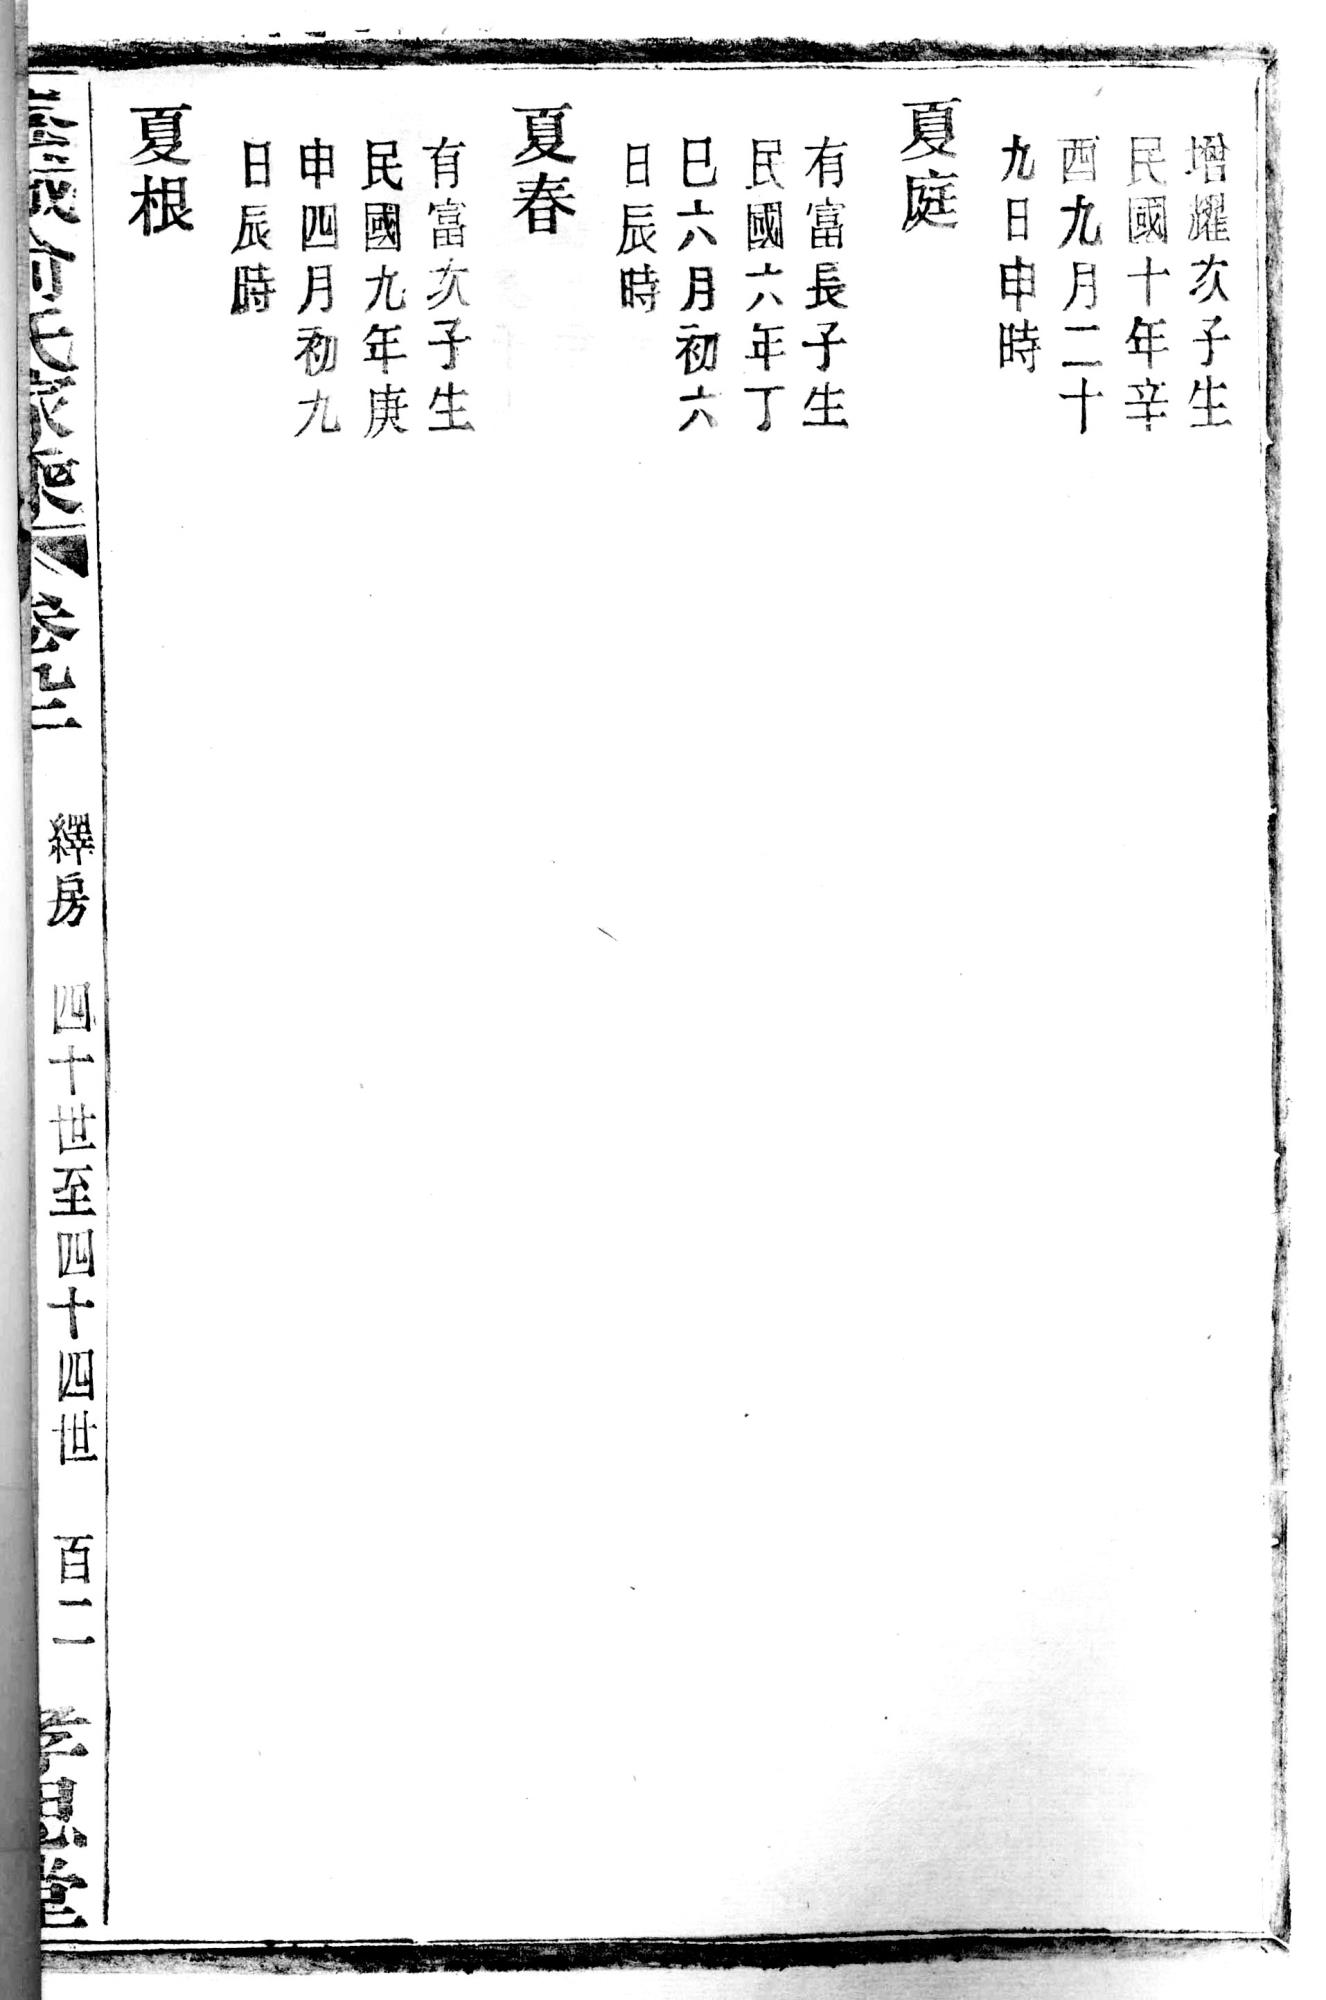 增耀次子生
民國十年辛
酉九月二十
九日申時
夏庭
有富長子生
民國六年丁
巳六月初六
日辰時
夏春
有富次子生
民國九年庚
申四月初九
日辰時
夏根
俞氏家乘 卷 繹房 四十世至四十四世 百二 孝思堂